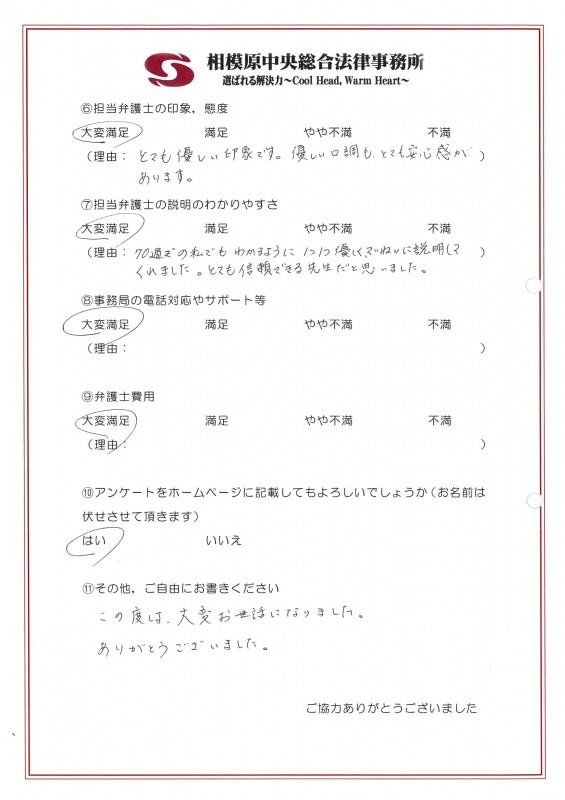 相模原中央総合法律事務所
選ばれる解決力～Cool Head, Warm Heart～
⑥担当弁護士の印象，態度
大変満足 満足 やや不満 不満
（理由： とても優しい印象です。優しい口調も、とても安心感が ）
あります。
⑦担当弁護士の説明のわかりやすさ
大変満足 満足 やや不満 不満
（理由： 70過ぎの私でも わかるように 1つ1つ優しく、ていねいに説明して ）
くれました。とても信頼できる先生だと思いました。
⑧事務局の電話対応やサポート等
大変満足 満足 やや不満 不満
（理由： ）
⑨弁護士費用
大変満足 満足 やや不満 不満
（理由： ）
⑩アンケートをホームページに記載してもよろしいでしょうか（お名前は
伏せさせて頂きます）
はい いいえ
⑪その他，ご自由にお書きください
この度は、大変お世話になりました。
ありがとうございました。
ご協力ありがとうございました